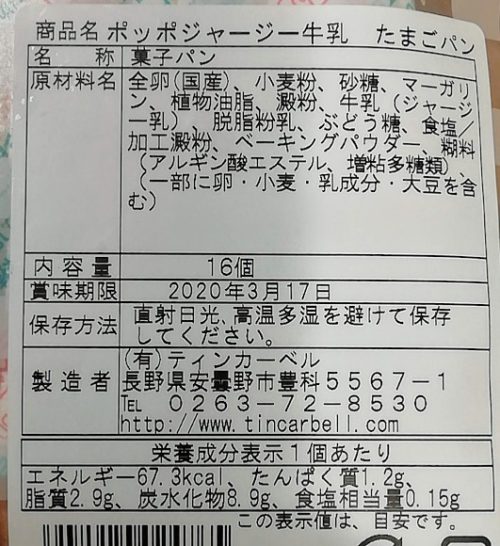 商品名 ポッポジャージー牛乳 たまごパン
名称 菓子パン
原材料名 全卵(国産)、小麦粉、砂糖、マーガリ
ン、植物油脂、澱粉、牛乳(ジャージ
ー乳)、脱脂粉乳、ぶどう糖、食塩/
加工澱粉、ベーキングパウダー、糊料
(アルギン酸エステル、増粘多糖類)、
(一部に卵・小麦・乳成分・大豆を含
む)
内容量 16個
賞味期限 2020年3月17日
保存方法 直射日光、高温多湿を避けて保存
してください。
製造者 (有)ティンカーベル
長野県安曇野市豊科5567-1
TEL 0263-72-8530
http://www.tincarbell.com
栄養成分表示1個あたり
エネルギー67.3kcal、たんぱく質1.2g、
脂質2.9g、炭水化物8.9g、食塩相当量0.15g
この表示値は、目安です。